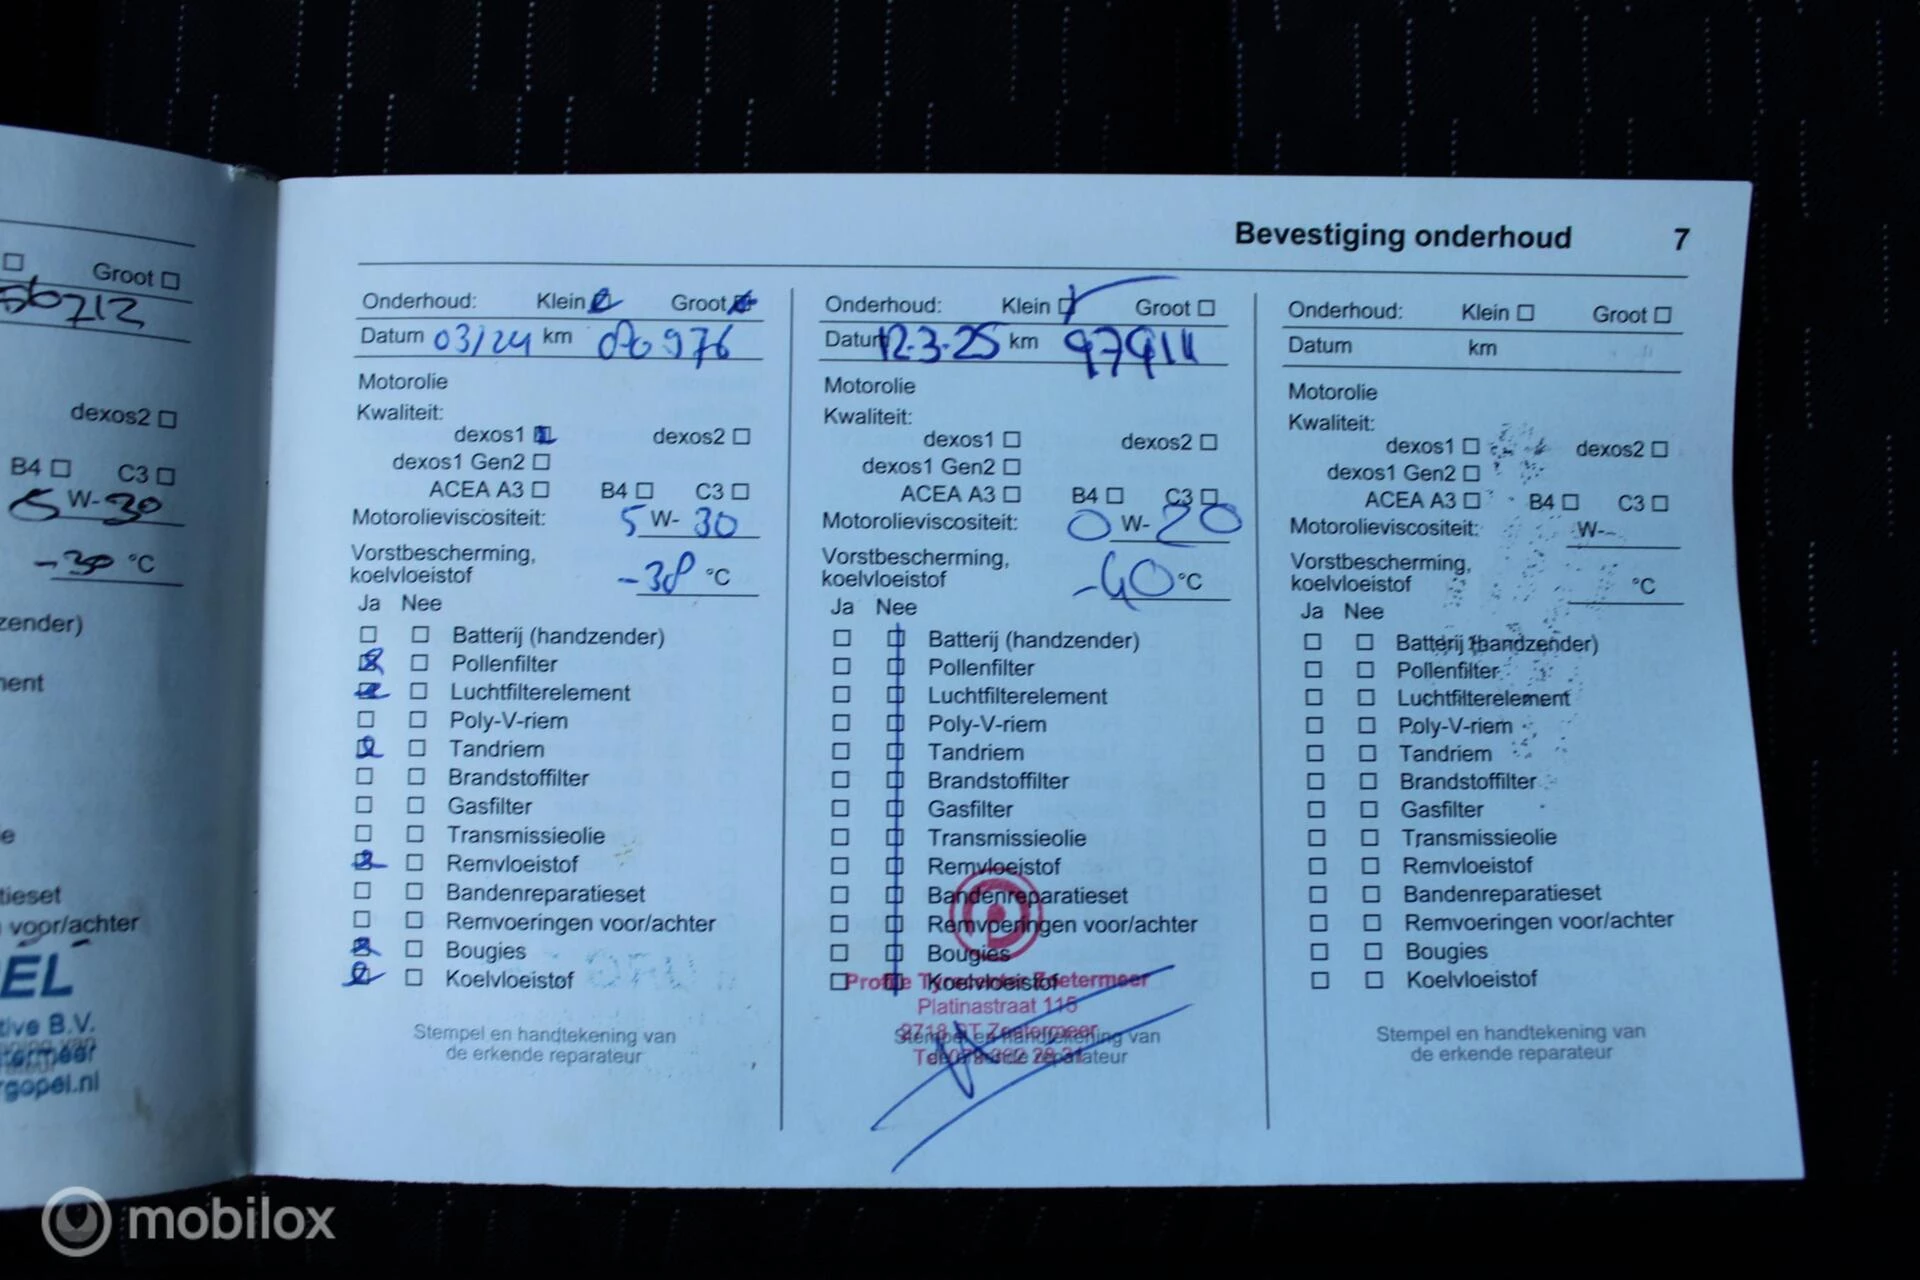 Groot
56712
dexos2
B4 C3
5 W-30
-30 °C
zender)
ment
e
tieset
voor/achter
EL
tive B.V.
termeer
rgopel.nl
Bevestiging onderhoud 7
Onderhoud: Klein Groot
Datum 03/24 km 080976
Motorolie
Kwaliteit:
dexos1 dexos2
dexos1 Gen2
ACEA A3 B4 C3
Motorolieviscositeit: 5 W- 30
Vorstbescherming,
koelvloeistof -38 °C
Ja Nee
Batterij (handzender)
Pollenfilter
Luchtfilterelement
Poly-V-riem
Tandriem
Brandstoffilter
Gasfilter
Transmissieolie
Remvloeistof
Bandenreparatieset
Remvoeringen voor/achter
Bougies
Koelvloeistof
Stempel en handtekening van
de erkende reparateur
Onderhoud: Klein Groot
Datum 12-3-25 km
Motorolie
Kwaliteit:
dexos1 dexos2
dexos1 Gen2
ACEA A3 B4 C3
Motorolieviscositeit: 0 W- 20
Vorstbescherming,
koelvloeistof -40 °C
Ja Nee
Batterij (handzender)
Pollenfilter
Luchtfilterelement
Poly-V-riem
Tandriem
Brandstoffilter
Gasfilter
Transmissieolie
Remvloeistof
Bandenreparatieset
Remvoeringen voor/achter
Bougies
Koelvloeistof
Profile Tyrecenter Zoetermeer
Platinastraat 115
Zoetermeer
Stempel en handtekening van
de erkende reparateur
Onderhoud: Klein Groot
Datum km
Motorolie
Kwaliteit:
dexos1 dexos2
dexos1 Gen2
ACEA A3 B4 C3
Motorolieviscositeit: W-
Vorstbescherming,
koelvloeistof °C
Ja Nee
Batterij (handzender)
Pollenfilter
Luchtfilterelement
Poly-V-riem
Tandriem
Brandstoffilter
Gasfilter
Transmissieolie
Remvloeistof
Bandenreparatieset
Remvoeringen voor/achter
Bougies
Koelvloeistof
Stempel en handtekening van
de erkende reparateur
mobilox